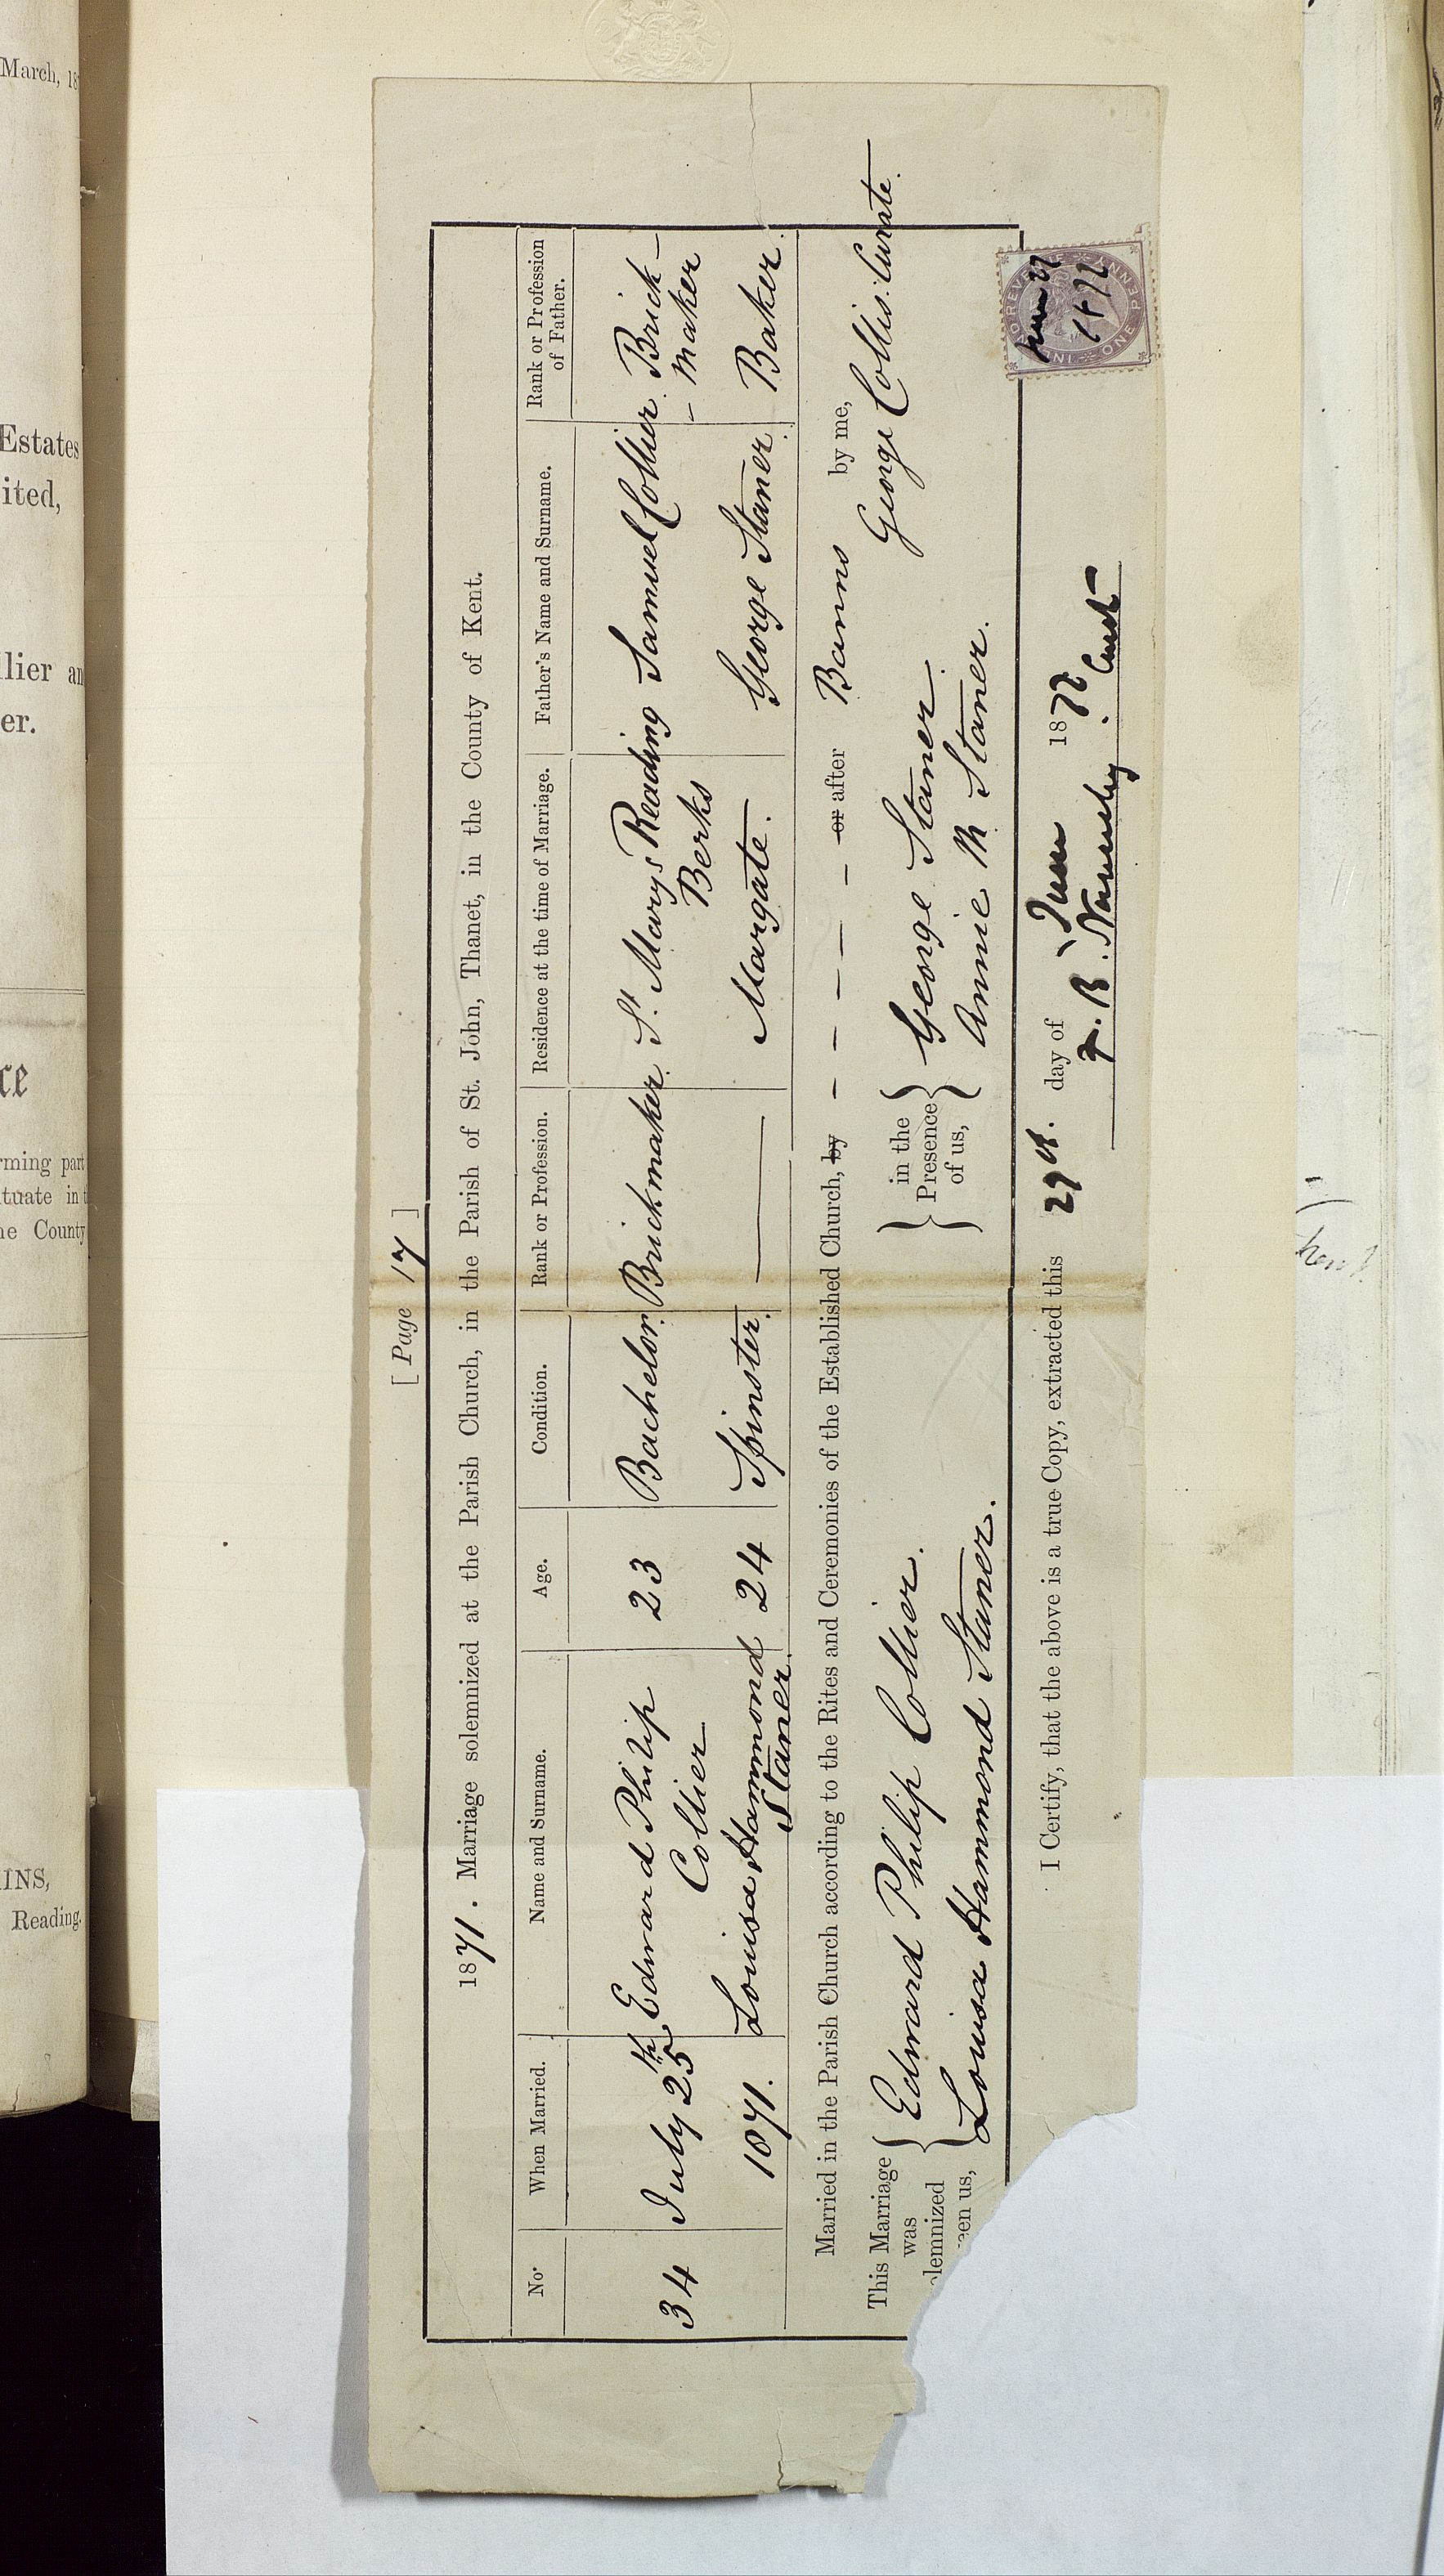 [ Page 17 ]
1871. Marriage solemnized at the Parish Church, in the Parish of St. John, Thanet, in the County of Kent.
No. When Married. Name and Surname. Age. Condition. Rank or Profession. Residence at the time of Marriage. Father's Name and Surname. Rank or Profession of Father.
34 July 25th Edward Philip Collier 23 Bachelor. Brickmaker. St. Marys Reading Berks Samuel Collier. Brick-maker
1871. Louisa Hammond Staner. 24 Spinster. — Margate. George Staner. Baker.
Married in the Parish Church according to the Rites and Ceremonies of the Established Church, by — — — — — or after Banns by me,
George Collis. Curate.
This Marriage was solemnized between us,
Edward Philip Collier.
Louisa Hammond Staner.
in the Presence of us,
George Staner.
Annie M Staner.
I Certify, that the above is a true Copy, extracted this 27th. day of June 1872
INLAND REVENUE
ONE PENNY
June 27
1872
March, 18
Estates
ited,
llier an
er.
ce
rming part
ituate in t
he County
INS,
Reading.